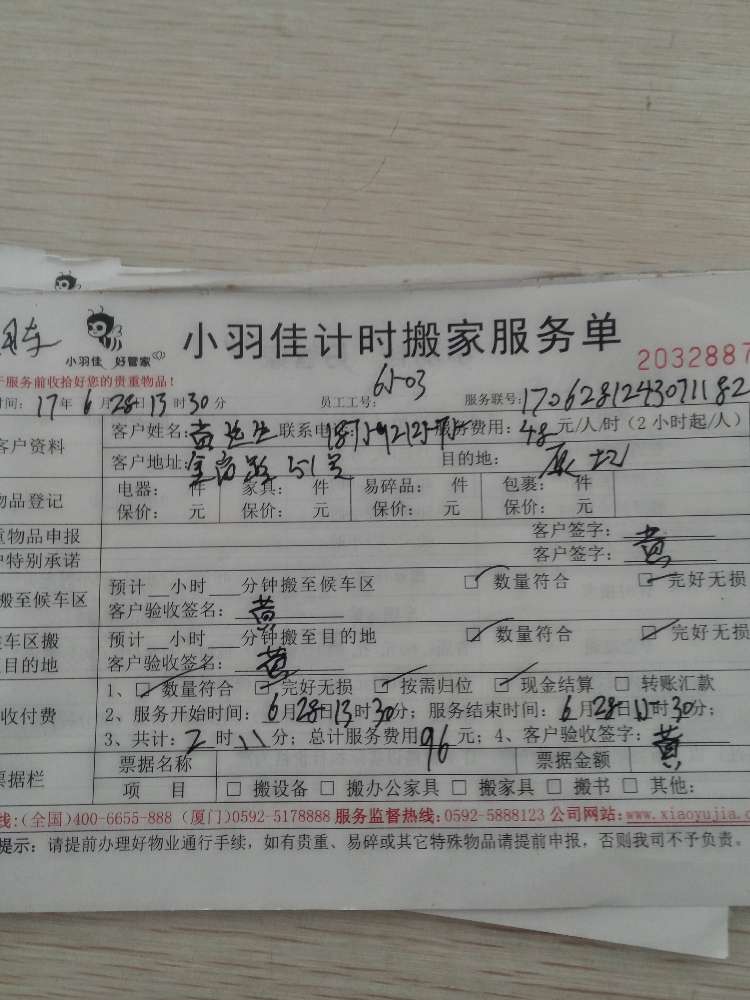 小羽佳 好管家
小羽佳计时搬家服务单
2032887
服务前收拾好您的贵重物品！
时间：17年6月28日13时30分 员工工号： 服务联号：1706281243071182
客户资料 客户姓名：黄先生 联系电 服务费用：48元/人/时（2小时起/人）
客户地址： 51号 目的地：原地
物品登记 电器： 件 家具： 件 易碎品： 件 包裹： 件
保价： 元 保价： 元 保价： 元 保价： 元
重物品申报 客户签字：
户特别承诺 客户签字：黄
搬至候车区 预计__小时___分钟搬至候车区 □ 数量符合 □ 完好无损
客户验收签名：黄
车区搬 预计__小时___分钟搬至目的地 □ 数量符合 □ 完好无损
目的地 客户验收签名：黄
收付费 1、□ 数量符合 □ 完好无损 □ 按需归位 □ 现金结算 □ 转账汇款
2、服务开始时间：6月28日13时30分；服务结束时间：6月28日15时30分；
3、共计：2时 分；总计服务费用96元；4、客户验收签字：黄
票据栏 票据名称 票据金额
项 目 □ 搬设备 □ 搬办公家具 □ 搬家具 □ 搬书 □ 其他：
线：(全国)400-6655-888 (厦门)0592-5178888 服务监督热线：0592-5888123 公司网站：www.xiaoyujia.c
提示：请提前办理好物业通行手续，如有贵重、易碎或其它特殊物品请提前申报，否则我司不予负责。